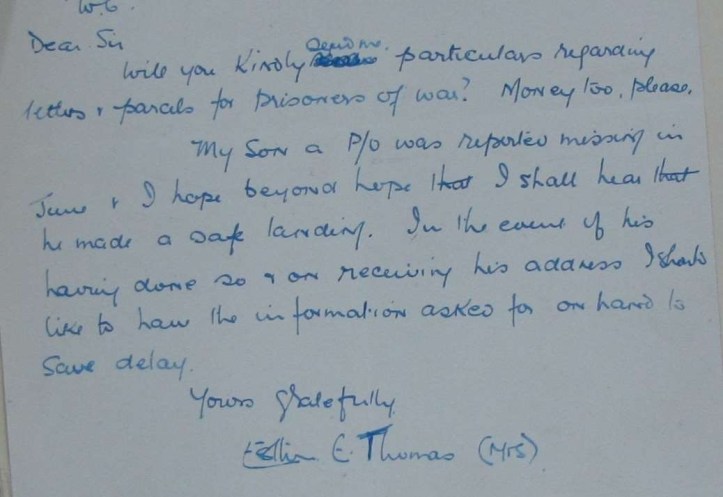 W.C.
Dear Sir
Will you Kindly send me particulars regarding
letters & parcels for prisoners of war? Money too, please.
My Son a P/O was reported missing in
June & I hope beyond hope that I shall hear that
he made a safe landing. In the event of his
having done so & on receiving his address I should
like to have the information asked for on hand to
save delay.
Yours gratefully
E. Thomas (Mrs)